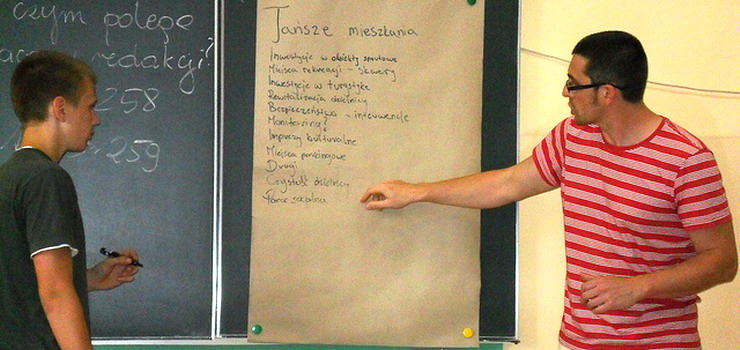 czym polega
redakcji?
258
259
Tańsze mieszkania
Inwestycje w obiekty sportowe
Miejsca rekreacji - skwery
Inwestycje w turystykę
Rewitalizacja dzielnicy
Bezpieczeństwo - interwencje
Monitoring?
Imprezy kulturalne
Miejsca parkingowe
Drogi
Czystość dzielnicy